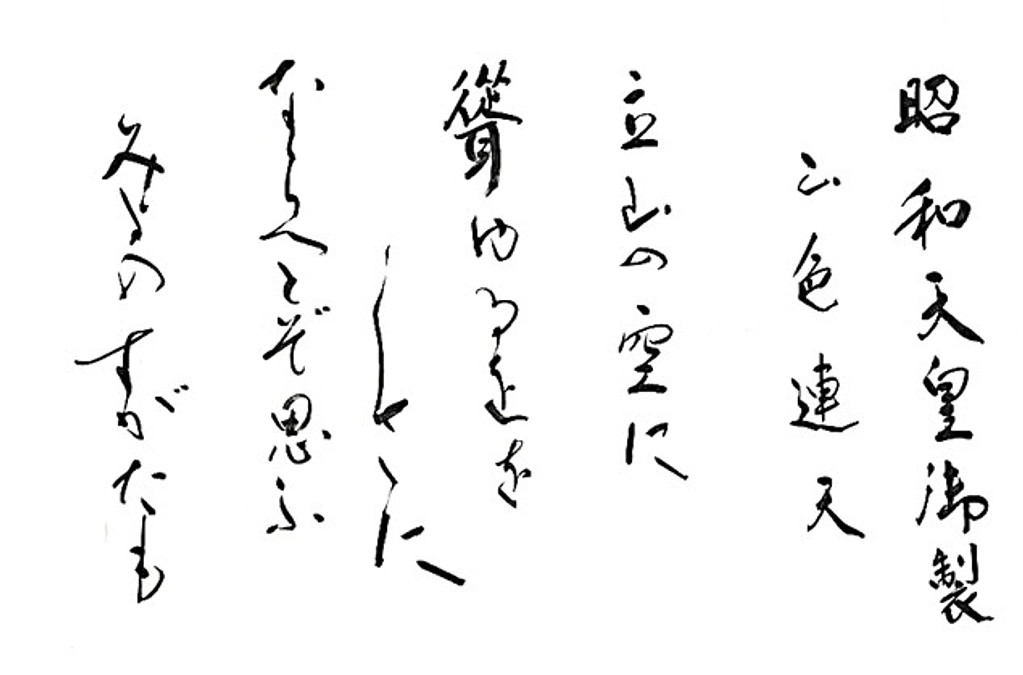 昭和天皇御製
山色連天
立山の空に
聳ゆるをを
しさに
ならへとぞ思ふ
みよのすがたも